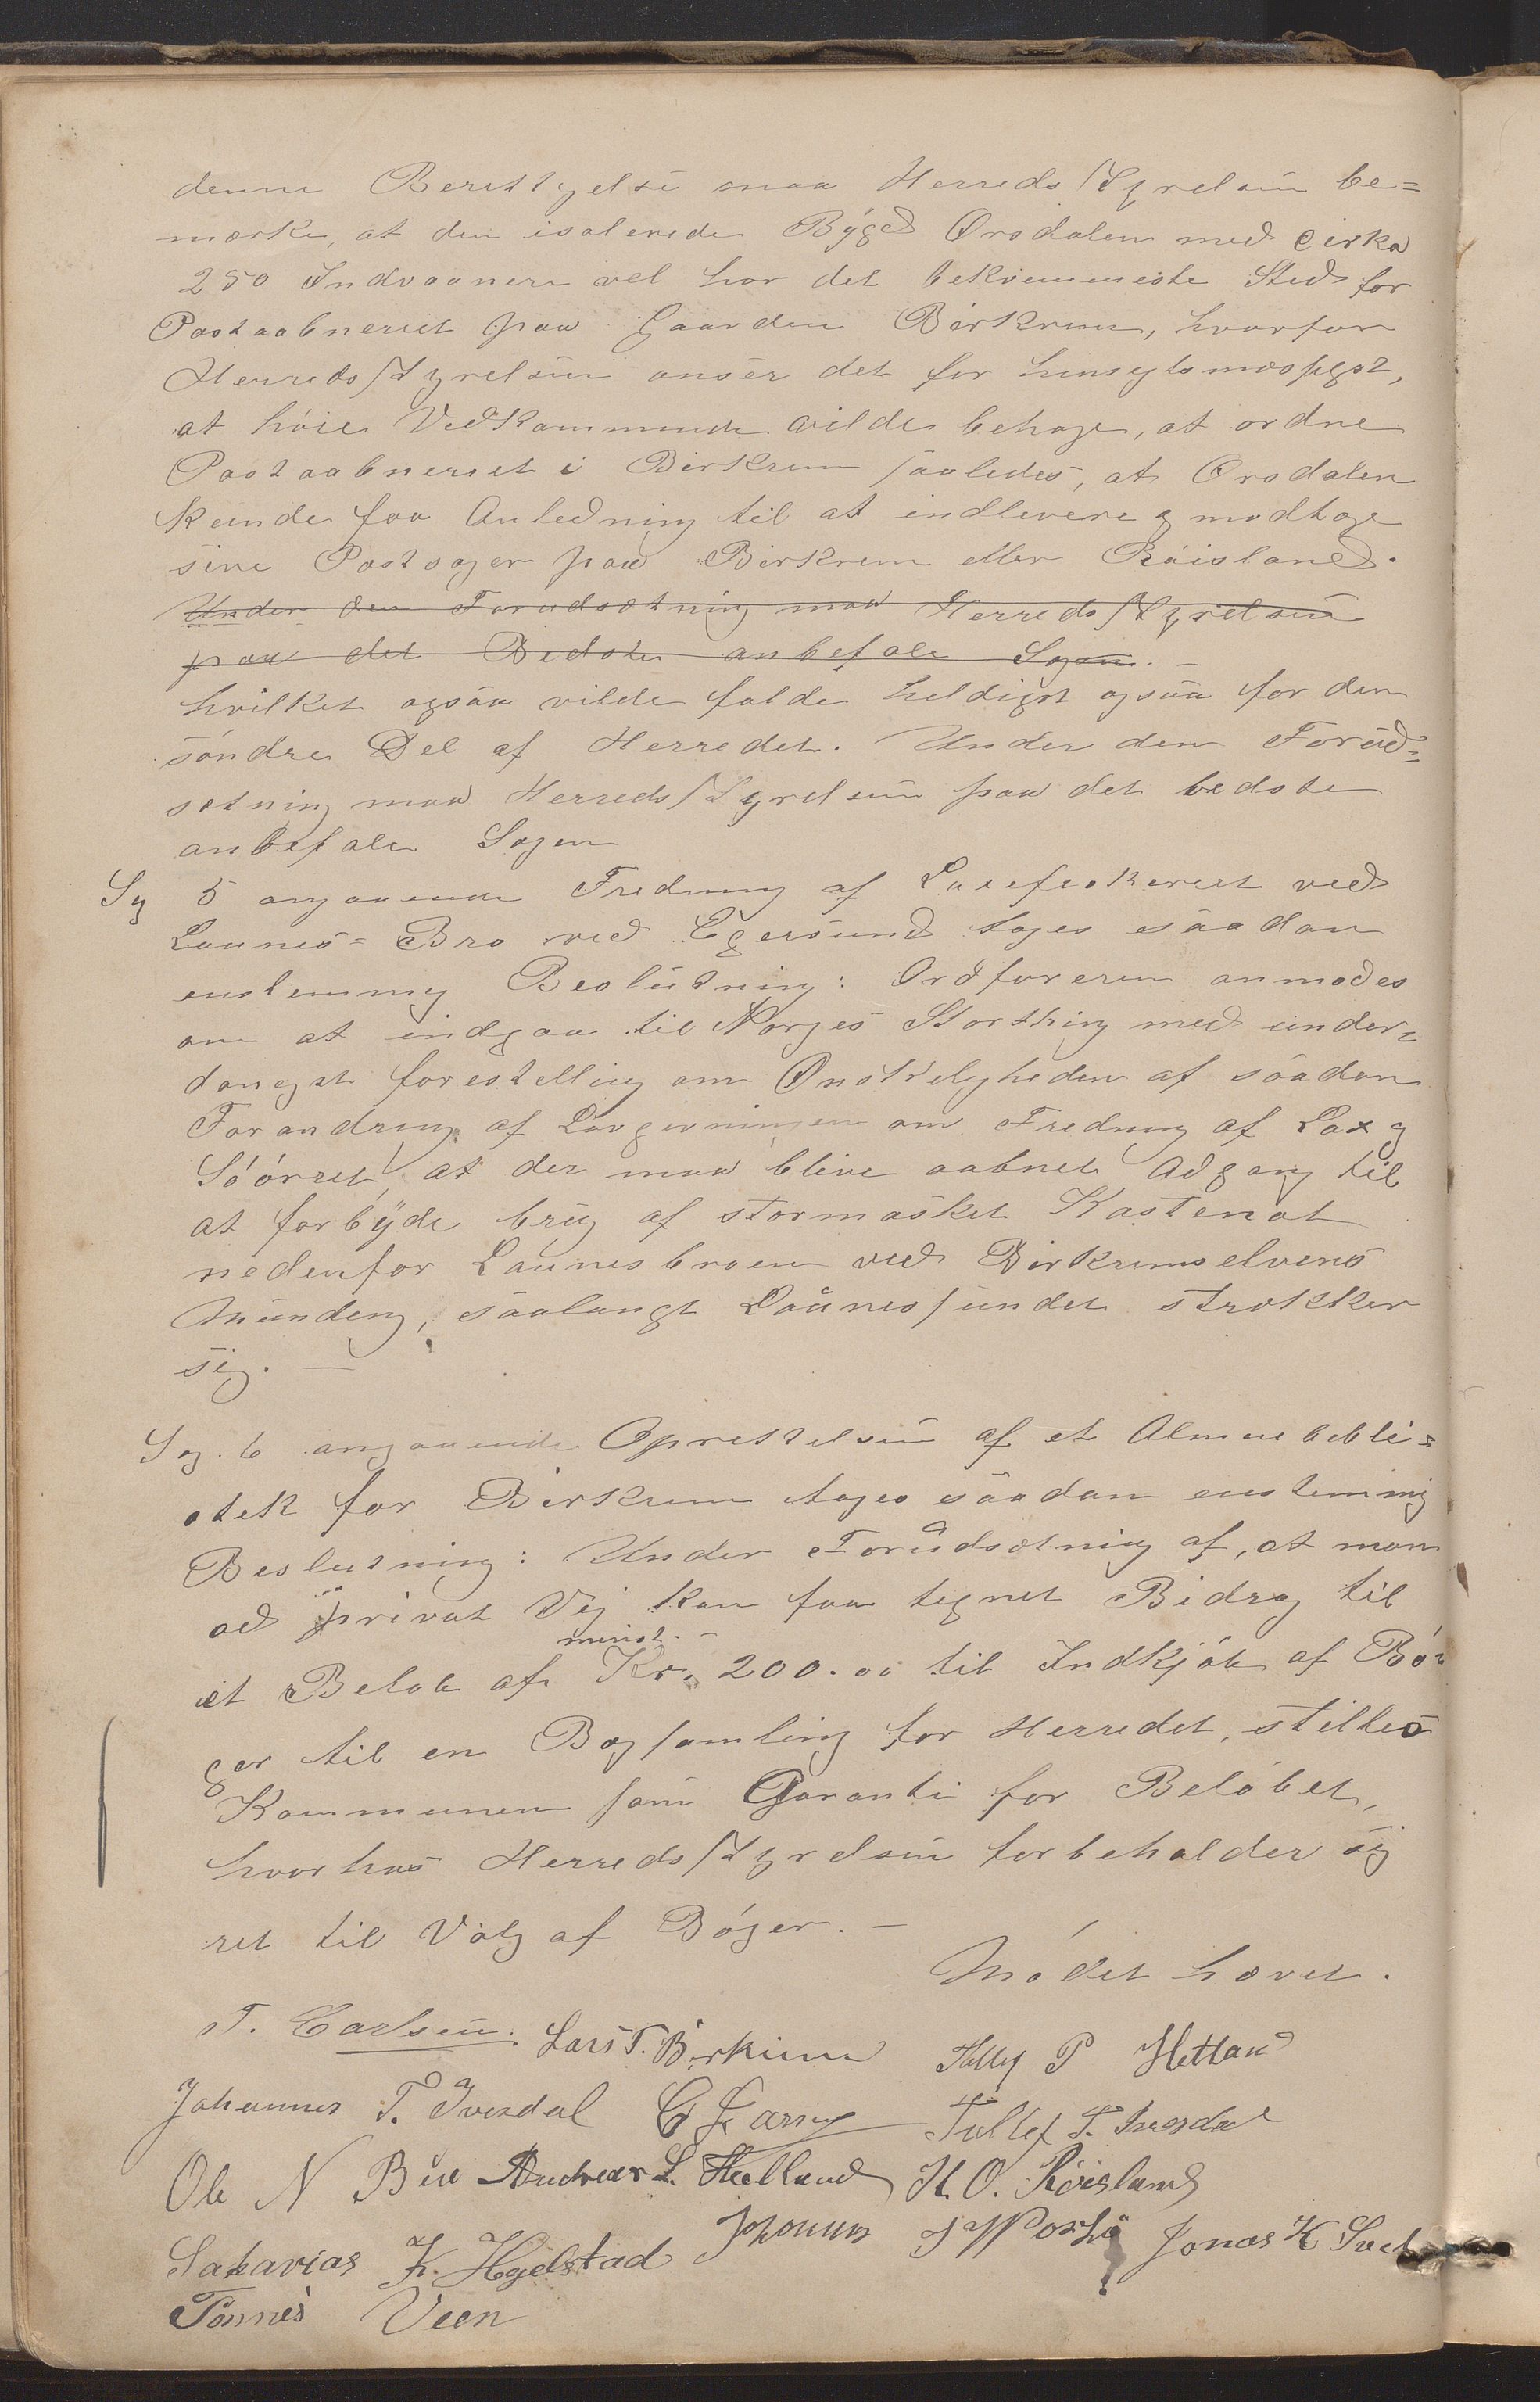 denne Berettigelse maa Herredsstyrelsen be=
mærke, at den isolerede Bygd Ørsdalen med cirka
250 Indvaanere vel har det bekvemmeste Sted for
Postaabneriet paa Gaarden Birkrem, hvorfor
Herredsstyrelsen anser det for hensigtsmæssigst,
at høie Vedkommende vilde behage, at ordne
Postaabneriet i Birkrem saaledes, at Ørsdalen
kunde faa Anledning til at indlevere og modtage
sine Postsager paa Birkrem eller Røisland.
Under den Forudsætning maa Herredsstyrelsen
paa det Bedste anbefale Sagen. —
hvilket ogsaa vilde falde heldigst ogsaa for den
søndre Del af Herredet. Under den Forud=
sætning maa Herredsstyrelsen paa det bedste
anbefale Sagen
Sag 5 angaaende Fredning af Laxefiskeriet ved
Launes=Bro ved Egersund toges saadan
enstemmig Beslutning: Ordføreren anmodes
om at indgaa til Norges Storthing med under=
danigst forestilling om Ønskeligheden af saadan
Forandring af Lovgivningen om Fredning af Lax og
Søørret, at der maa blive aabnet Adgang til
at forbyde brug af stormasket Kastenot
nedenfor Launesbroen ved Birkremselvens
Munding, saalangt Launessundet strækker
sig. —
Sag. 6 angaaende Oprettelsen af et Almuebibli=
otek for Birkrem toges saadan enstemmig
Beslutning: Under Forudsætning af, at man
ad privat Vej kan faa tegnet Bidrag til
minst. —
et Beløb af Kr. 200.00 til Indkjøb af Bø=
ger til en Bogsamling for Herredet, stilles
Kommunen som Garanti for Beløbet,
hvorhos Herredsstyrelsen forbeholder sig
ret til Valg af Bøger. —
Mødet hævet.
T. Carlsen. Lars T. Birkrem Tolly P Hetland
Johannes T. Ivesdal Tollef T. Ivesdal
Ole N Bue Andreas L. Helland H. O. Røisland
Sakarias K. Hgelstad Jonas K
Tønnes Veen